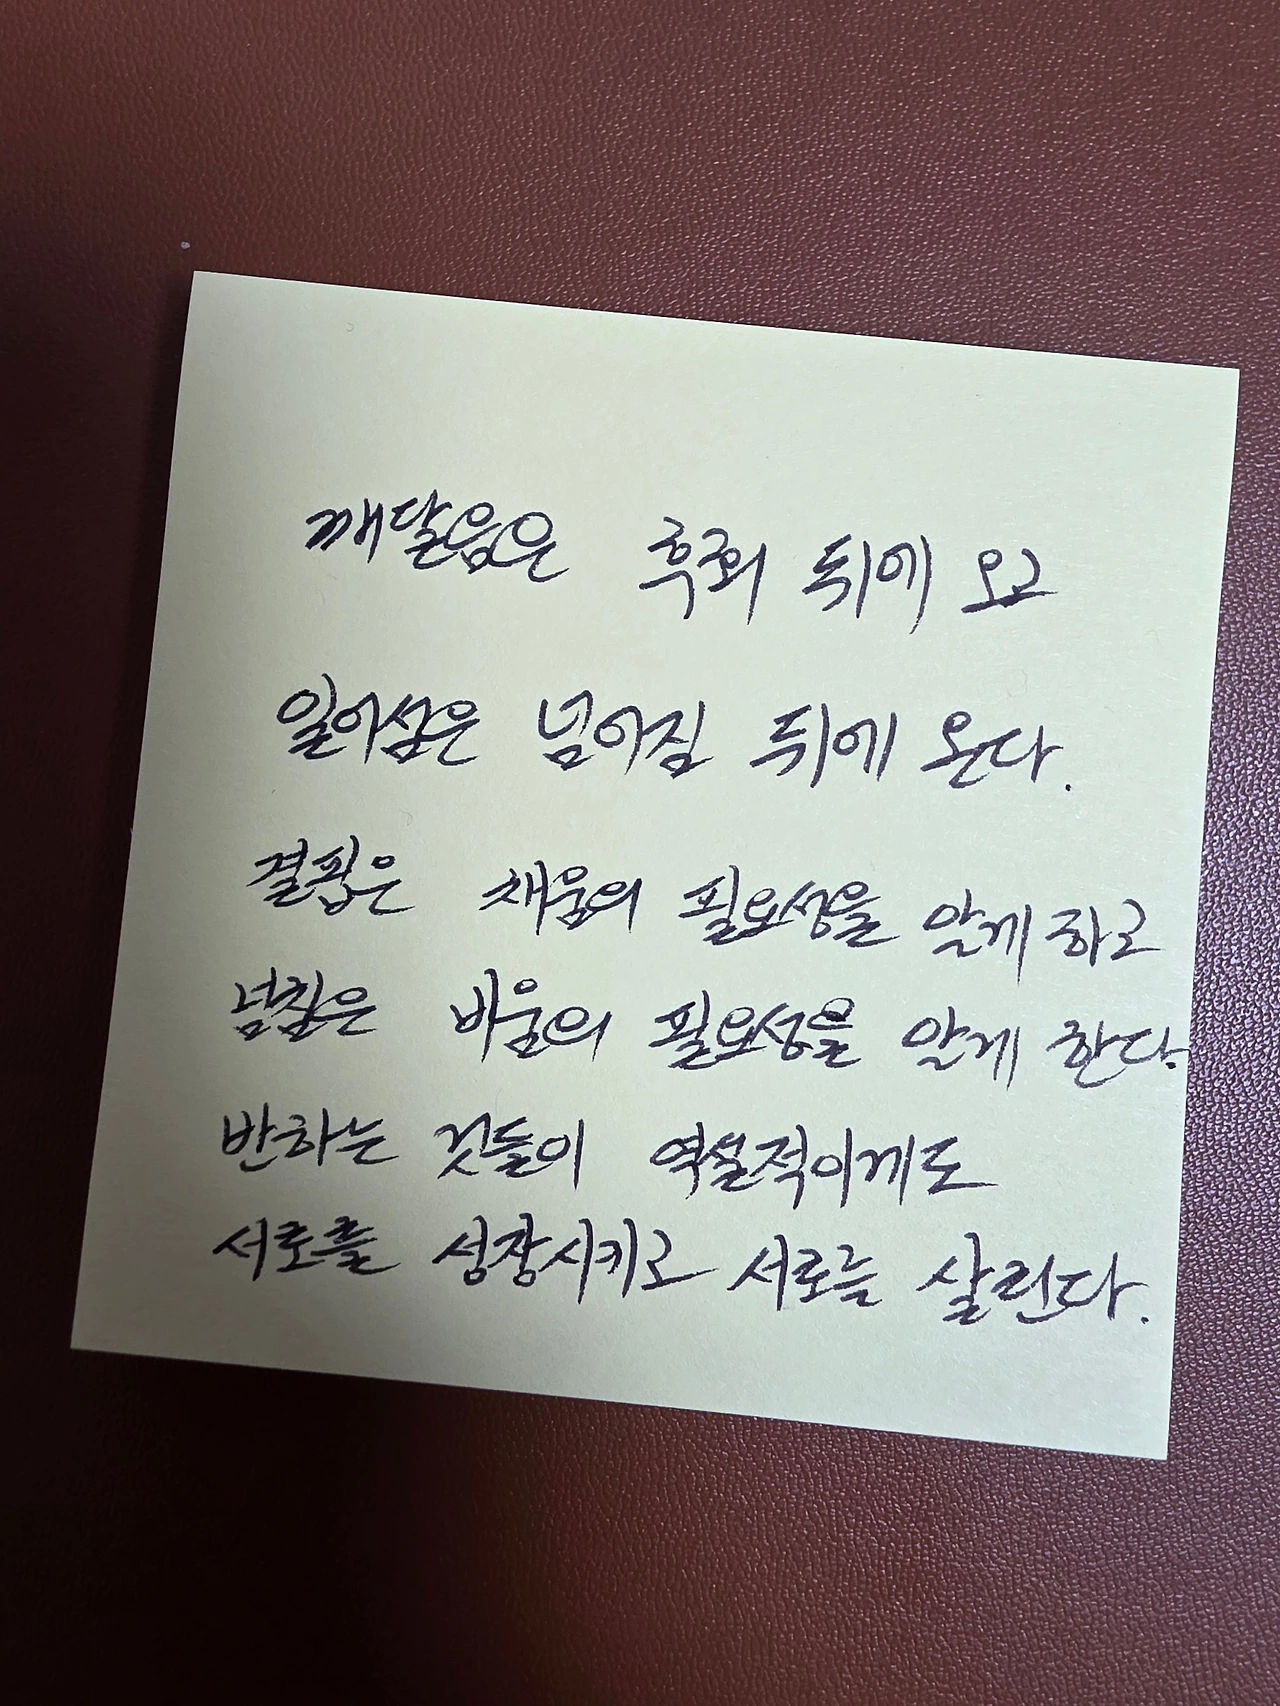 깨달음은 후회 뒤에 오고
일어섬은 넘어짐 뒤에 온다.
결핍은 채움의 필요성을 알게 하고
넘침은 비움의 필요성을 알게 한다.
반하는 것들이 역설적이게도
서로를 성장시키고 서로를 살린다.